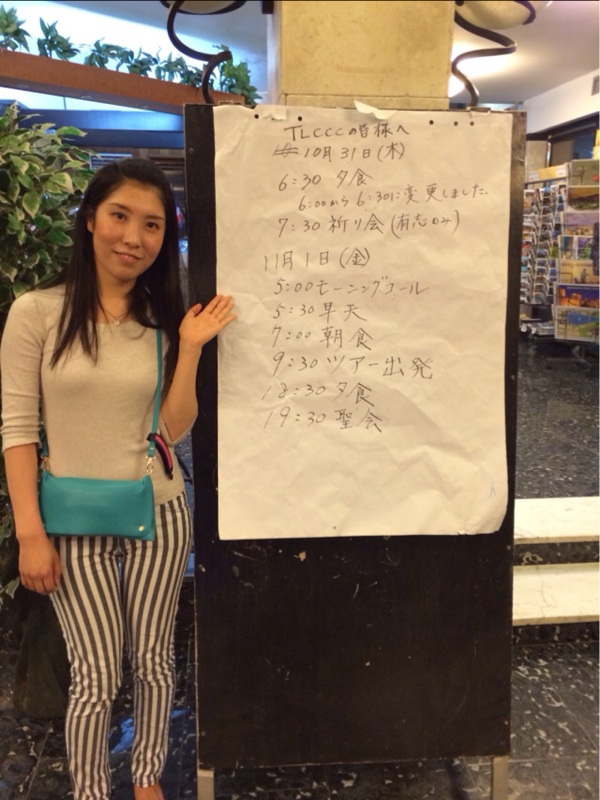 TLCCCの皆様へ
10月31日(木)
6:30 夕食
6:00から6:30に変更しました.
7:30 祈り会(有志のみ)
11月1日(金)
5:00モーニングコール
5:30早天
7:00 朝食
9:30ツアー出発
18:30夕食
19:30 聖会